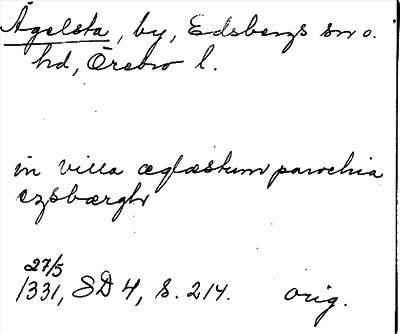 Ägelsta, by, Edsbergs sn o.
hd, Örebro l.
in villa æglæstum parochia
ezsbærgh
27/5
1331, SD 4, s. 214. orig.